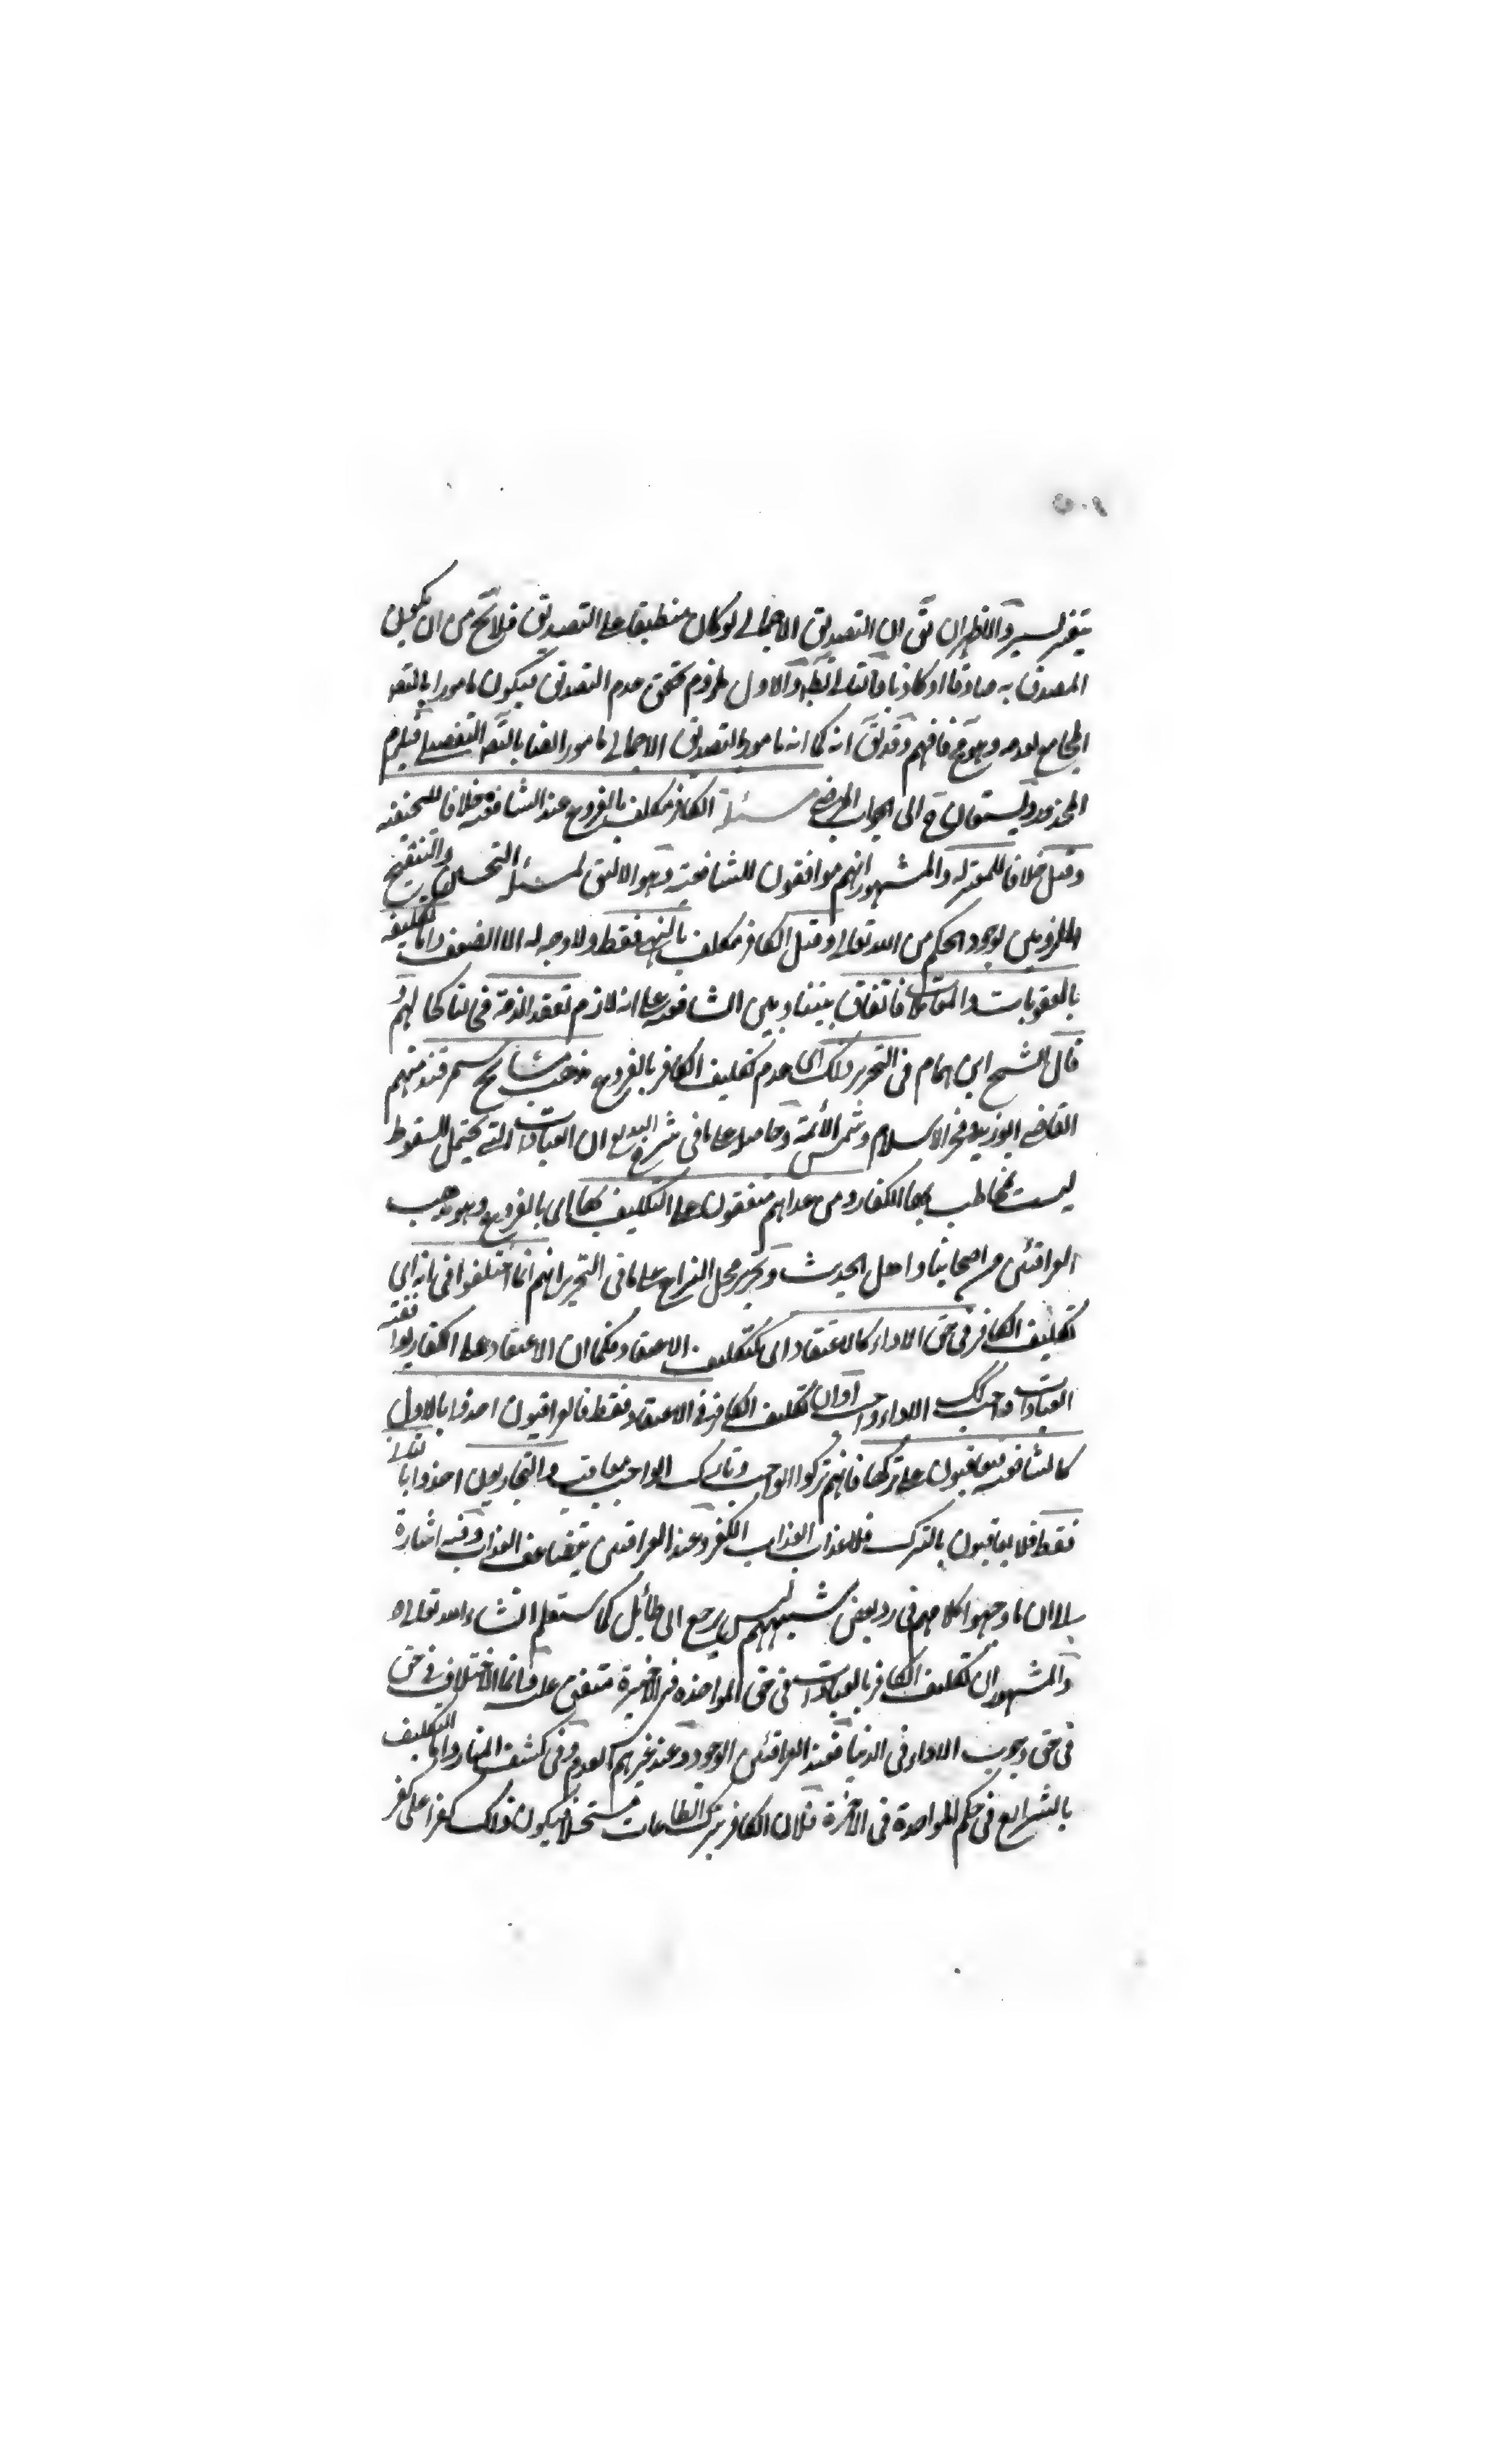 بتغير يسير والاظهر ان يق ان التصديق الاجمالي لو كان منطبقا على التصديق فلايخ من ان يكون
المصدق به صادقا او كاذبا والاول ملزوم تحقق عدم التصديق فيكون مامورا بالتصد
الجامع لعدمه وهو مح فافهم وقد يق انه كما انه مامور بالتصديق الاجمالي مامور ايضا بالتصد التفصيلي فيلزم
المحذور الى الجواب المرضي مسئلة الكافر مكلف بالفروع عند الشافعية خلافا للحنفية
وقيل خلافا للمعتزلة والمشهور انهم موافقون للشافعية وهو الاليق لمسئلة التحسين والتقبيح
الملزومين لوجود الحكم من الله تعالى وقيل الكافر مكلف بالنهي فقط ولا وجه له الا الضعف واما تكليفه
بالعقوبات والمعاملات فاتفاق بيننا وبين الشافعية على انه لازم بعقد الذمة في لنا كما لهم و
قال الشيخ ابن همام في التحرير ذلك اى عدم تكليف الكافر بالفروع مذهب مشايخ سمرقند منهم
القاضي ابوزيد وفخر الاسلام وشمس الائمة وحاصله على ما في شرح البديع ان العبادات التي يحتمل السقوط
ليست بمخاطب بها الكفار ومن عداهم متفقون على التكليف بها اى بالفروع وهو مذهب
العراقيين من اصحابنا واهل الحديث وتحرير محل النزاع على ما في التحرير انهم انما اختلفوا في انه اى
تكليف الكافر في حق الاداء كالاعتقاد اى كتكليف الاعتقاد فكما ان الاعتقاد على الكفار بحقية
العبادات واجب كك الاداء واجب او ان تكليف الكافر في الاعتقاد فقط فالعراقيون اخذوا بالاول
كالشافعية فيعاقبون على تركها فانهم تركوا الواجب وتارك الواجب معاقب والبخاريون اخذوا بالثاني
فقط فلا يعاقبون بالترك فلا عذاب الا عذاب الكفر وعند العراقيين يتضاعف العذاب وفيه اشارة
الى ان ما وجهوا كلامهم في رد بعض شبههم ليس يرجع الى طائل كما ستعلم انشاء الله تعالى
والمشهور ان تكليف الكافر بالعبادات في حق المواخذة في الاخرة متفق عليه وانما الاختلاف في حق
في حق وجوب الاداء في الدنيا فعند العراقيين الوجود وعند غيرهم العدم وفي كشف المنار واما التكليف
بالشرايع في حكم المواخذة في الاخرة فلان الكافر بترك الطاعات مستحلا فيكون ذلك كفرا على كفر